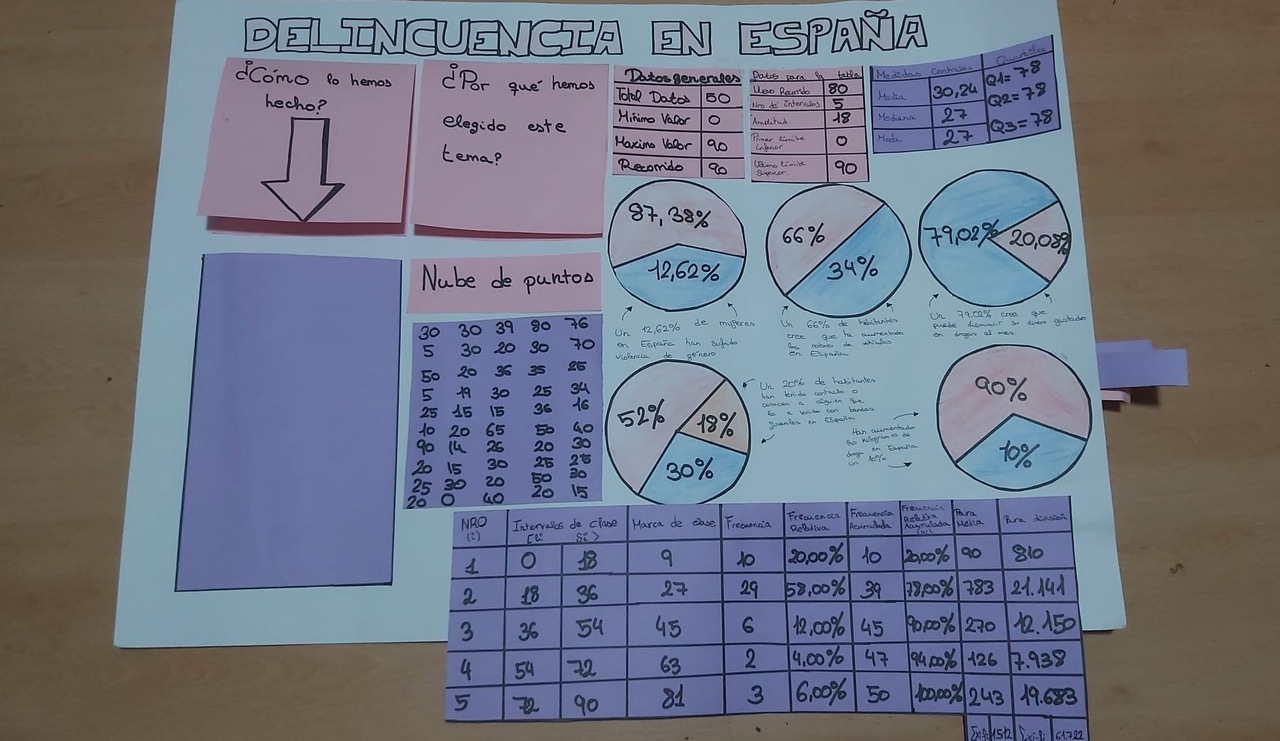 DELINCUENCIA EN ESPAÑA
¿Cómo lo hemos
hecho?
¿Por qué hemos
elegido este
tema?
Datos generales
Total Datos 50
Minimo Valor 0
Maximo Valor 90
Recorrido 90
Datos para la tabla
Nuevo Recorrido 80
Nro de intervalos 5
Amplitud 18
Primer límite inferior 0
Ultimo límite Superior 90
Medidas Centrales
Media 30,24
Mediana 27
Moda 27
Quartiles
Q1=78
Q2=78
Q3=78
87,38%
12,62%
66%
34%
79,02%
20,08%
Un 12,62% de mujeres
en España han sufrido
violencia de género
Un 66% de habitantes
cree que ha aumentado
los robos de vehículos
en España
Un 79,02% cree que
puede disminuir su dinero gastado
en drogas al mes.
Nube de puntos
30 30 39 80 76
5 30 20 30 70
50 20 36 35 25
5 19 30 25 34
25 15 15 36 16
10 20 65 50 40
90 14 26 20 30
20 15 30 25 25
25 30 20 50 30
20 0 40 20 15
52%
18%
30%
Un 20% de habitantes
han tenido contacto o
conocen a alguien que
lo a tenido con bandas
juveniles en España
Han aumentado
los kilogramos de
droga en España
un 10%
90%
10%
NRO (i) Intervalos de clase [Li Si> Marca de clase Frecuencia Frecuencia Relativa Frecuencia Acumulada Frecuencia Relativa Acumulada Para Media Para división
1 0 18 9 10 20,00% 10 20,00% 90 810
2 18 36 27 29 58,00% 39 78,00% 783 21.141
3 36 54 45 6 12,00% 45 90,00% 270 12.150
4 54 72 63 2 4,00% 47 94,00% 126 7.938
5 72 90 81 3 6,00% 50 100,00% 243 19.683
1512 61722